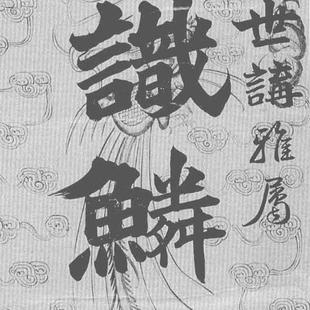 世講雅屬
識鱗